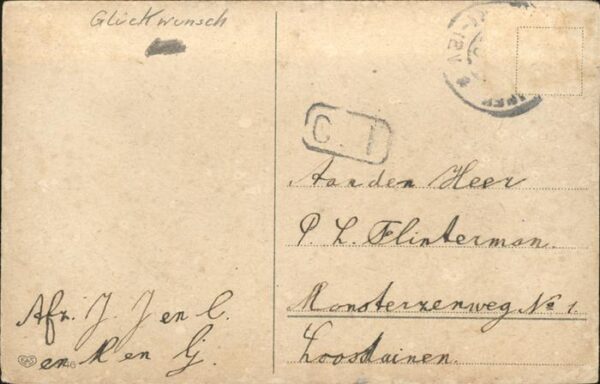 Glückwunsch
C. 1
Aan den Heer
P. L. Flinterman.
Monsterzenweg No 1.
Loosduinen.
Afz. J. J en C.
en M en G.